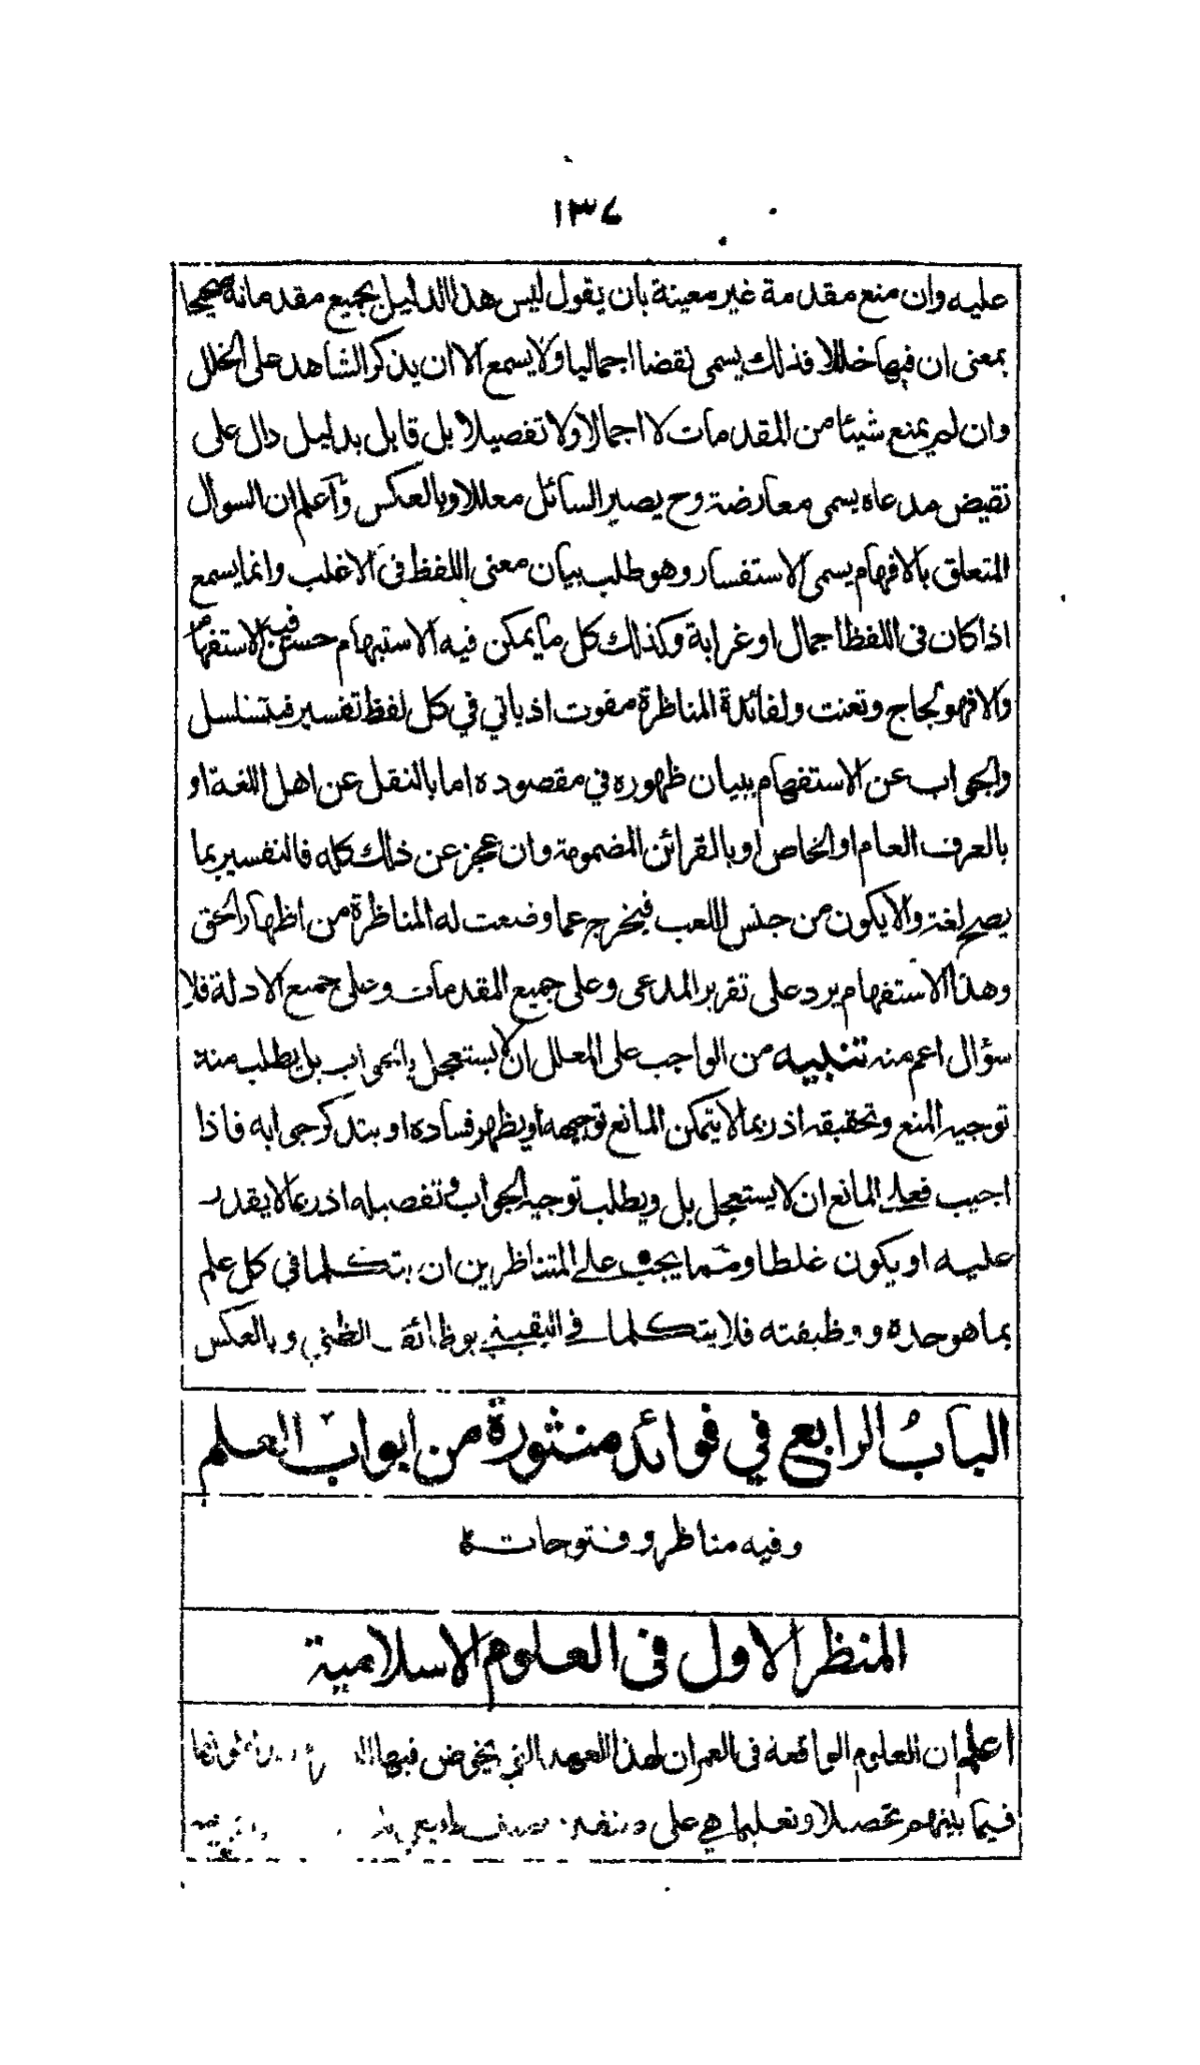 ١٣٤
عليه وان منع مقدمة غير معينة بان يقول ليس هذا الدليل بجميع مقدماته صحيحا
بمعنى ان فيها خللا فذلك يسمى نقضا اجماليا ولا يسمع الا ان يذكر الشاهد على الخلل
وان لم يمنع شيئا من المقدمات لا اجمالا ولا تفصيلا بل قابل بدليل دال على
نقيض مدعاه يسمى معارضة وح يصير السائل معللا وبالعكس وآعلم ان السوال
المتعلق بالافهام يسمى الاستفسار وهو طلب بيان معنى اللفظ فى الاغلب وانما يسمع
اذا كان فى اللفظ اجمال او غرابة وكذلك كل ما يمكن فيه الاستبهام حسن فيه الاستفهام
والا فهو لجاج وتعنت ولفائدة المناظرة مفوت اذ ياتي في كل لفظ تفسير فيتسلسل
والجواب عن الاستفهام ببيان ظهوره في مقصوده اما بالنقل عن اهل اللغة او
بالعرف العام او الخاص او بالقرائن المضمومة وان عجز عن ذلك كله فالتفسير بما
يصح لغة والا يكون من جنس اللعب فيخرج عما وضعت له المناظرة من اظهار الحق
وهذا الاستفهام يرد على تقرير المدعى وعلى جميع المقدمات وعلى جميع الادلة فلا
سؤال اعم منه تنبيه من الواجب على المعلل ان لا يستعجل بالجواب بل يطلب منه
توجيه المنع وتحقيقه اذ ربما لا يتمكن المانع توجيهه او يظهر فساده او يتذكر جوابه فاذا
اجيب فعلى المانع ان لا يستعجل بل ويطلب توجيه الجواب وتفصيله اذ ربما لا يقدر
عليه او يكون غلطا ومما يجب على المتناظرين ان يتكلما في كل علم
بما هو حده ووظيفته فلا يتكلما في اليقيني بوظائف الظني وبالعكس
الباب الرابع في فوائد منثورة من ابواب العلم
وفيه مناظر وفتوحات
المنظر الاول فى العلوم الاسلامية
اعلم ان العلوم الواقعة فى العمران لهذا العهد التي يخوض فيها
فيما بينهم تحصيلا وتعليما هي على